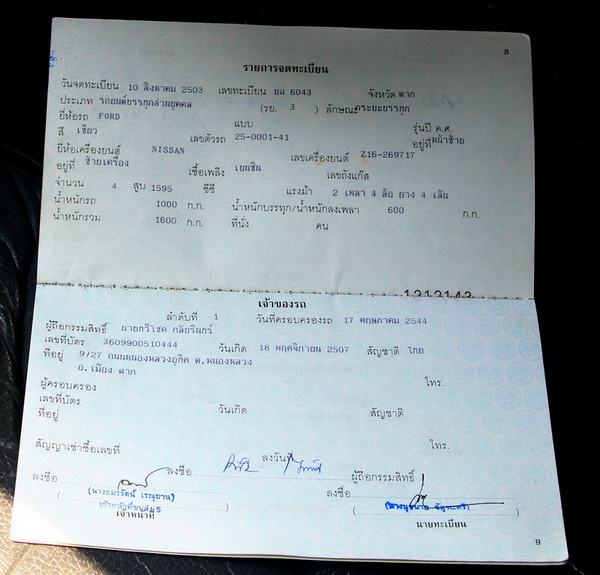 ส
รายการจดทะเบียน
วันจดทะเบียน 10 สิงหาคม 2503 เลขทะเบียน 6043 จังหวัด ตาก
ประเภท รถยนต์บรรทุกส่วนบุคคล (รย. 3 ) ลักษณะ กระบะบรรทุก
ยี่ห้อรถ FORD แบบ รุ่นปี ค.ศ.
สี เขียว เลขตัวรถ 25-0001-41 อยู่ที่ หน้าซ้าย
ยี่ห้อเครื่องยนต์ NISSAN เลขเครื่องยนต์ Z16-269717
อยู่ที่ ซ้ายเครื่อง เชื้อเพลิง เบนซิน เลขถังแก๊ส
จำนวน 4 สูบ 1595 ซีซี แรงม้า 2 เพลา 4 ล้อ ยาง 4 เส้น
น้ำหนักรถ 1000 ก.ก. น้ำหนักบรรทุก/น้ำหนักลงเพลา 600 ก.ก.
น้ำหนักรวม 1600 ก.ก. ที่นั่ง คน
เจ้าของรถ
ลำดับที่ 1 วันที่ครอบครองรถ 17 พฤษภาคม 2544
ผู้ถือกรรมสิทธิ์ นายทวีโชค กลัยรินทร์
เลขที่บัตร 3609900510444 วันเกิด 18 พฤศจิกายน 2507 สัญชาติ ไทย
ที่อยู่ 9/27 ถนนหนองหลวงอุทิศ ต.หนองหลวง
อ.เมือง ตาก โทร.
ผู้ครอบครอง
เลขที่บัตร วันเกิด สัญชาติ
ที่อยู่ โทร.
สัญญาเช่าซื้อเลขที่ ลงวันที่ ผู้ถือกรรมสิทธิ์
ลงชื่อ ลงชื่อ ลงชื่อ
(นางอมรรัตน์ เรณุมาน)
เจ้าหน้าที่ขนส่ง 5
เจ้าหน้าที่ นายทะเบียน
9